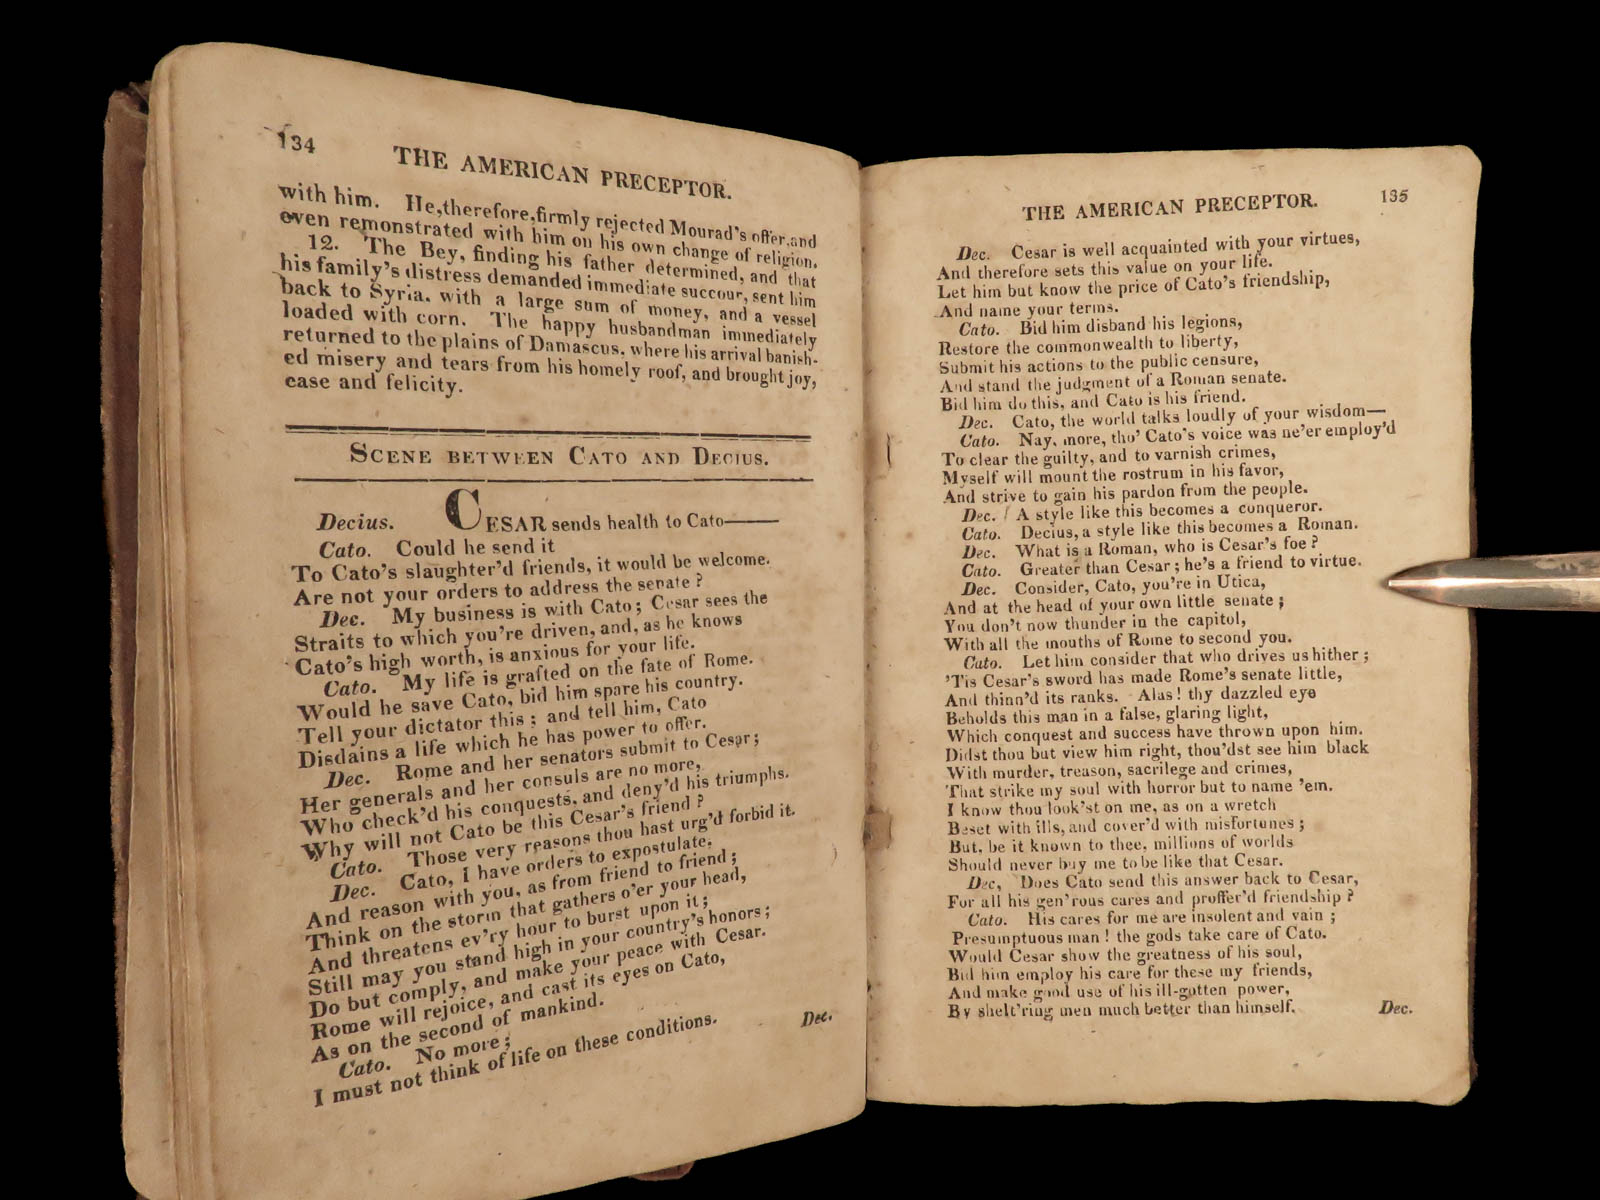 134
THE AMERICAN PRECEPTOR.
with him. He, therefore, firmly rejected Mourad's offer, and
even remonstrated with him on his own change of religion.
12. The Bey, finding his father determined, and that
his family's distress demanded immediate succour, sent him
back to Syria, with a large sum of money, and a vessel
loaded with corn. The happy husbandman immediately
returned to the plains of Damascus, where his arrival banish-
ed misery and tears from his homely roof, and brought joy,
ease and felicity.
SCENE BETWEEN CATO AND DECIUS.
Decius. CESAR sends health to Cato——
Cato. Could he send it
To Cato's slaughter'd friends, it would be welcome.
Are not your orders to address the senate?
Dec. My business is with Cato; Cesar sees the
Straits to which you're driven, and, as he knows
Cato's high worth, is anxious for your life.
Cato. My life is grafted on the fate of Rome.
Would he save Cato, bid him spare his country.
Tell your dictator this; and tell him, Cato
Disdains a life which he has power to offer.
Dec. Rome and her senators submit to Cesar;
Her generals and her consuls are no more,
Who check'd his conquests, and deny'd his triumphs.
Why will not Cato be this Cesar's friend?
Cato. Those very reasons thou hast urg'd forbid it.
Dec. Cato, I have orders to expostulate,
And reason with you, as from friend to friend;
Think on the storm that gathers o'er your head,
And threatens ev'ry hour to burst upon it;
Still may you stand high in your country's honors;
Do but comply, and make your peace with Cesar.
Rome will rejoice, and cast its eyes on Cato,
As on the second of mankind.
Cato. No more;
I must not think of life on these conditions.
Dec.
THE AMERICAN PRECEPTOR. 135
Dec. Cesar is well acquainted with your virtues,
And therefore sets this value on your life.
Let him but know the price of Cato's friendship,
And name your terms.
Cato. Bid him disband his legions,
Restore the commonwealth to liberty,
Submit his actions to the public censure,
And stand the judgment of a Roman senate.
Bid him do this, and Cato is his friend.
Dec. Cato, the world talks loudly of your wisdom—
Cato. Nay, more, tho' Cato's voice was ne'er employ'd
To clear the guilty, and to varnish crimes,
Myself will mount the rostrum in his favor,
And strive to gain his pardon from the people.
Dec. A style like this becomes a conqueror.
Cato. Decius, a style like this becomes a Roman.
Dec. What is a Roman, who is Cesar's foe?
Cato. Greater than Cesar; he's a friend to virtue.
Dec. Consider, Cato, you're in Utica,
And at the head of your own little senate;
You don't now thunder in the capitol,
With all the mouths of Rome to second you.
Cato. Let him consider that who drives us hither;
'Tis Cesar's sword has made Rome's senate little,
And thinn'd its ranks. Alas! thy dazzled eye
Beholds this man in a false, glaring light,
Which conquest and success have thrown upon him.
Didst thou but view him right, thou'dst see him black
With murder, treason, sacrilege and crimes,
That strike my soul with horror but to name 'em.
I know thou look'st on me, as on a wretch
Beset with ills, and cover'd with misfortunes;
But, be it known to thee, millions of worlds
Should never buy me to be like that Cesar.
Dec, Does Cato send this answer back to Cesar,
For all his gen'rous cares and proffer'd friendship?
Cato. His cares for me are insolent and vain;
Presumptuous man! the gods take care of Cato.
Would Cesar show the greatness of his soul,
Bid him employ his care for these my friends,
And make good use of his ill-gotten power,
By shelt'ring men much better than himself.
Dec.